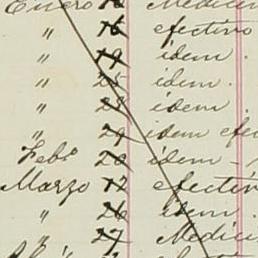 Enero Medicin
" 16 efectivo
" 19 idem.
" 25 idem.
" 28 idem
" 29 idem efec
Feb.o 20 idem -
Marzo 12 efectiv
" 26 idem.
" 27 Medici